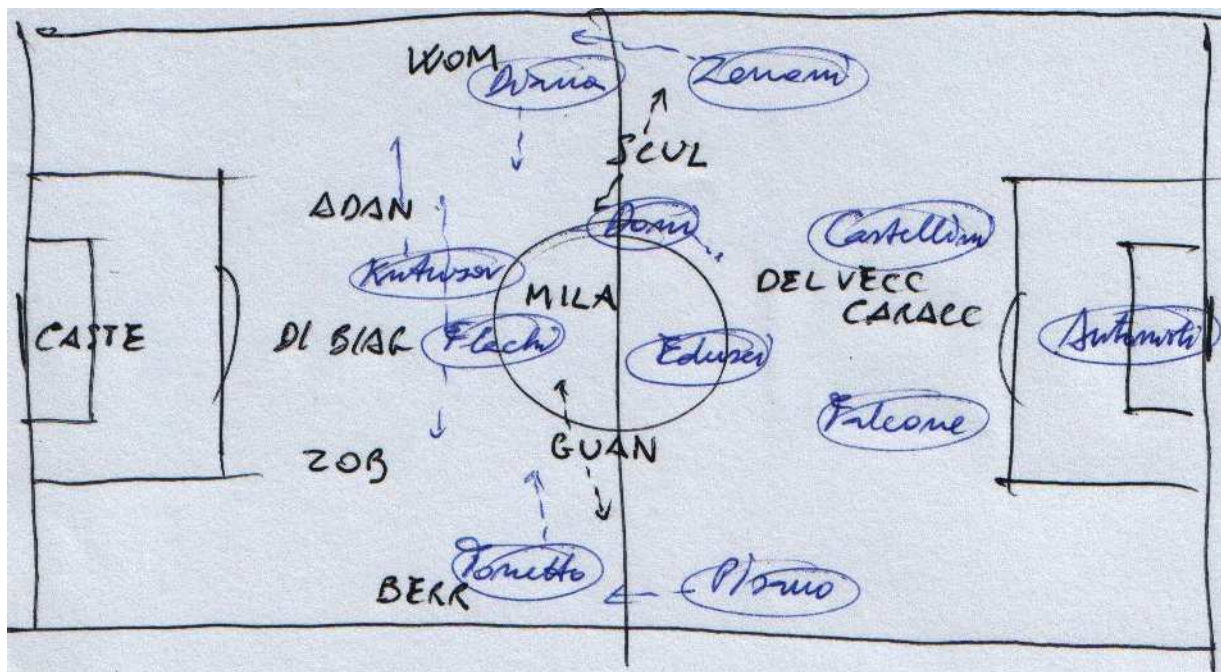 WOM
Diana
Zenoni
SCUL
ADAN
Doni
Castellini
Kutuzov
MILA
DEL VECC
CARACC
CASTE
DI BIAG
Flachi
Edusei
Antonioli
Falcone
GUAN
ZOB
Tonetto
Pisano
BERR